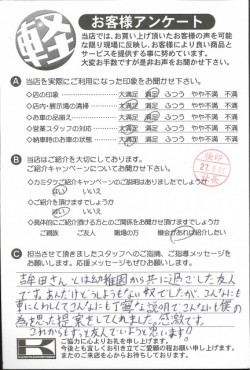 軽
お客様アンケート
当店では、お買い上げ頂いたお客様の声を可能
な限り現場に反映し、お客様により良い商品と
サービスを提供する事に努めています。
大変お手数ですが是非お声をお聞かせ下さい。
A 当店を実際にご利用になった印象をお聞かせ下さい。
◇店の印象 大満足 満足 ふつう やや不満 不満
◇店内・展示場の清掃 大満足 満足 ふつう やや不満 不満
◇お車の品揃え 大満足 満足 ふつう やや不満 不満
◇営業スタッフの対応 大満足 満足 ふつう やや不満 不満
◇納車時のお車の状態 大満足 満足 ふつう やや不満 不満
B 当店はご紹介を大切にしております。
ご紹介キャンペーンについてお聞かせ下さい。
◇カミタケご紹介キャンペーンのご説明はありましたでしょうか
はい いいえ
◇ご紹介をお見せ頂けますでしょうか
はい いいえ
◇具体的にご紹介頂ける方とのご関係をお聞かせ頂けますでしょうか
ご親族 ご友人 職場の方 機会があれば紹介したい
C 担当させて頂きましたスタッフへのご指摘、ご指導メッセージを
お願いします。応援メッセージもぜひお願いします。
さんとは幼稚園から共に過ごした友人
です。あんだけどうしようもない奴でしたが、こんなにも
丁寧な説明で、こんなにも僕の
為を思った提案をしてくれました。感激です。
これからもずっと友人でいようと思います!!
ご協力に心よりお礼を申し上げます。
今後とも宜しくお引き立てご愛顧の程お願い申し上げます。
またのご来店を心からお待ちしております。